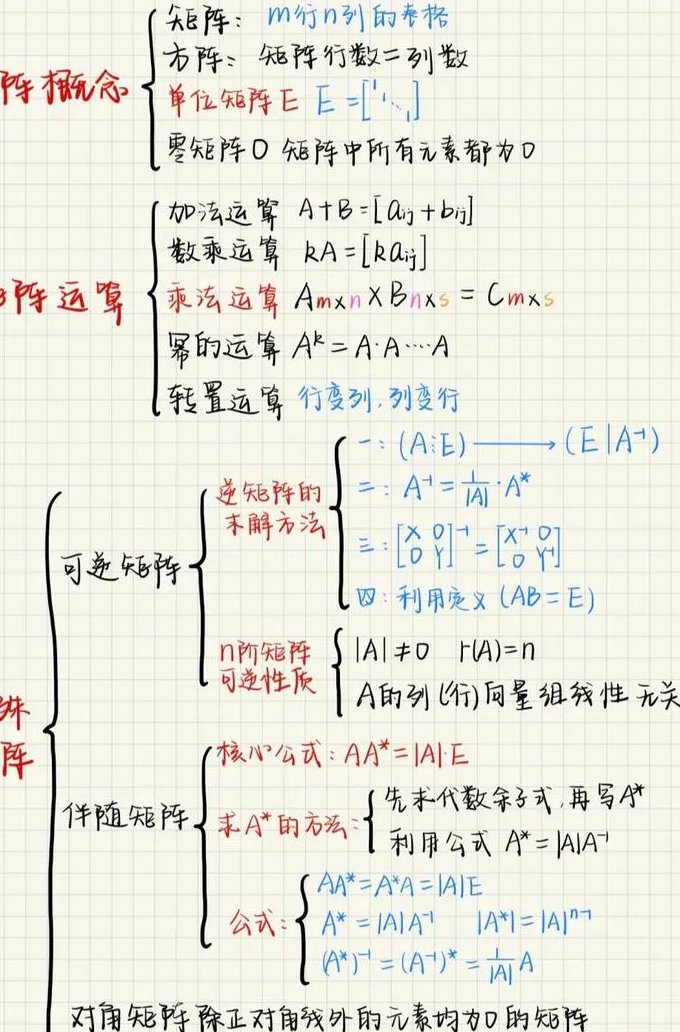 矩阵: m行n列的表格
方阵: 矩阵行数=列数
阵概念
单位矩阵E E=[¹⋱₁]
零矩阵O 矩阵中所有元素都为0
加法运算 A+B=[aij+bij]
数乘运算 kA=[kaij]
阵运算
乘法运算 Am×n×Bn×s=Cm×s
幂的运算 Aᵏ=A·A····A
转置运算 行变列,列变行
可逆矩阵
逆矩阵的
求解方法
一: (A⋮E)⟶(E|A⁻¹)
二: A⁻¹=1/|A|·A*
三: [X 0 0 Y]⁻¹=[X⁻¹ 0 0 Y⁻¹]
四: 利用定义(AB=E)
n阶矩阵
可逆性质
|A|≠0 r(A)=n
A的列(行)向量组线性无关
殊
阵
伴随矩阵
核心公式: AA*=|A|·E
求A*的方法:
先求代数余子式,再写A*
利用公式 A*=|A|A⁻¹
公式:
AA*=A*A=|A|E
A*=|A|A⁻¹ |A*|=|A|ⁿ⁻¹
(A*)⁻¹=(A⁻¹)*=1/|A| A
对角矩阵 除正对角线外的元素均为0的矩阵